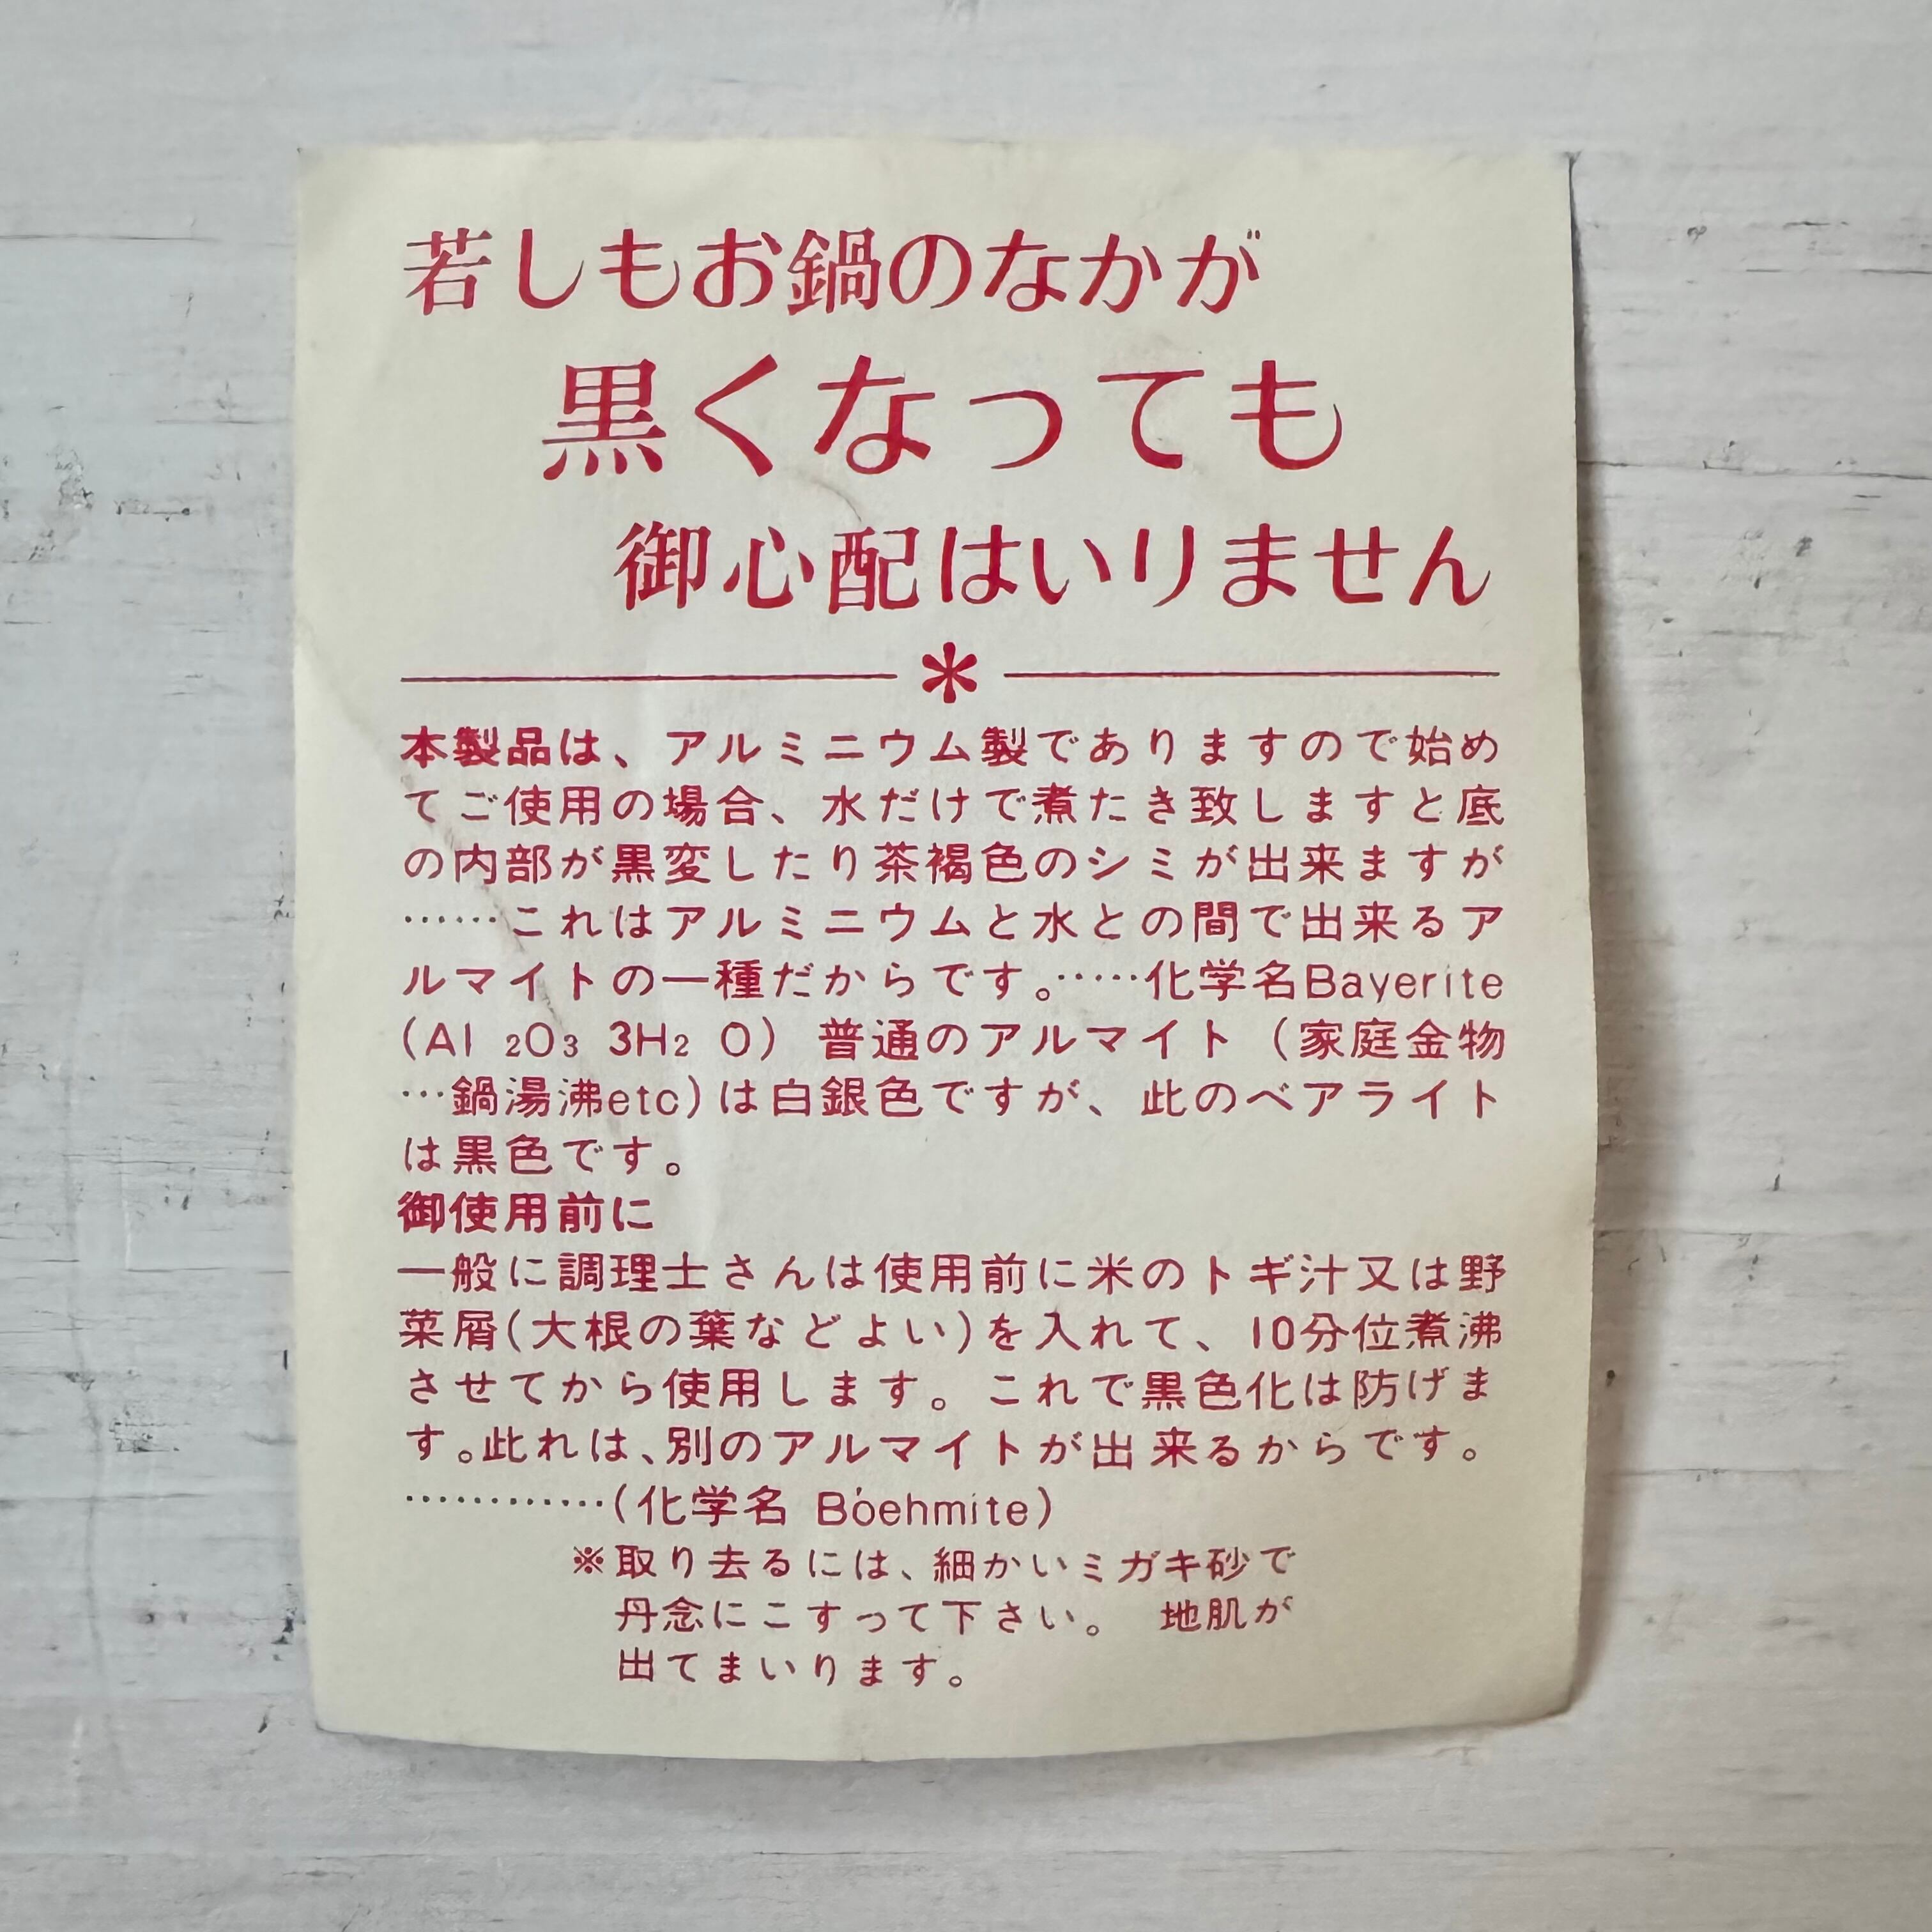 若しもお鍋のなかが
黒くなっても
御心配はいりません
*
本製品は、アルミニウム製でありますので始め
てご使用の場合、水だけで煮たき致しますと底
の内部が黒変したり茶褐色のシミが出来ますが
……これはアルミニウムと水との間で出来るア
ルマイトの一種だからです。……化学名Bayerite
(Al ₂O₃ 3H₂ O) 普通のアルマイト (家庭金物
…鍋湯沸etc)は白銀色ですが、此のベアライト
は黒色です。
御使用前に
一般に調理士さんは使用前に米のトギ汁又は野
菜屑(大根の葉などよい)を入れて、10分位煮沸
させてから使用します。これで黒色化は防げま
す。此れは、別のアルマイトが出来るからです。
…………(化学名 Bóehmite)
※取り去るには、細かいミガキ砂で
丹念にこすって下さい。 地肌が
出てまいります。